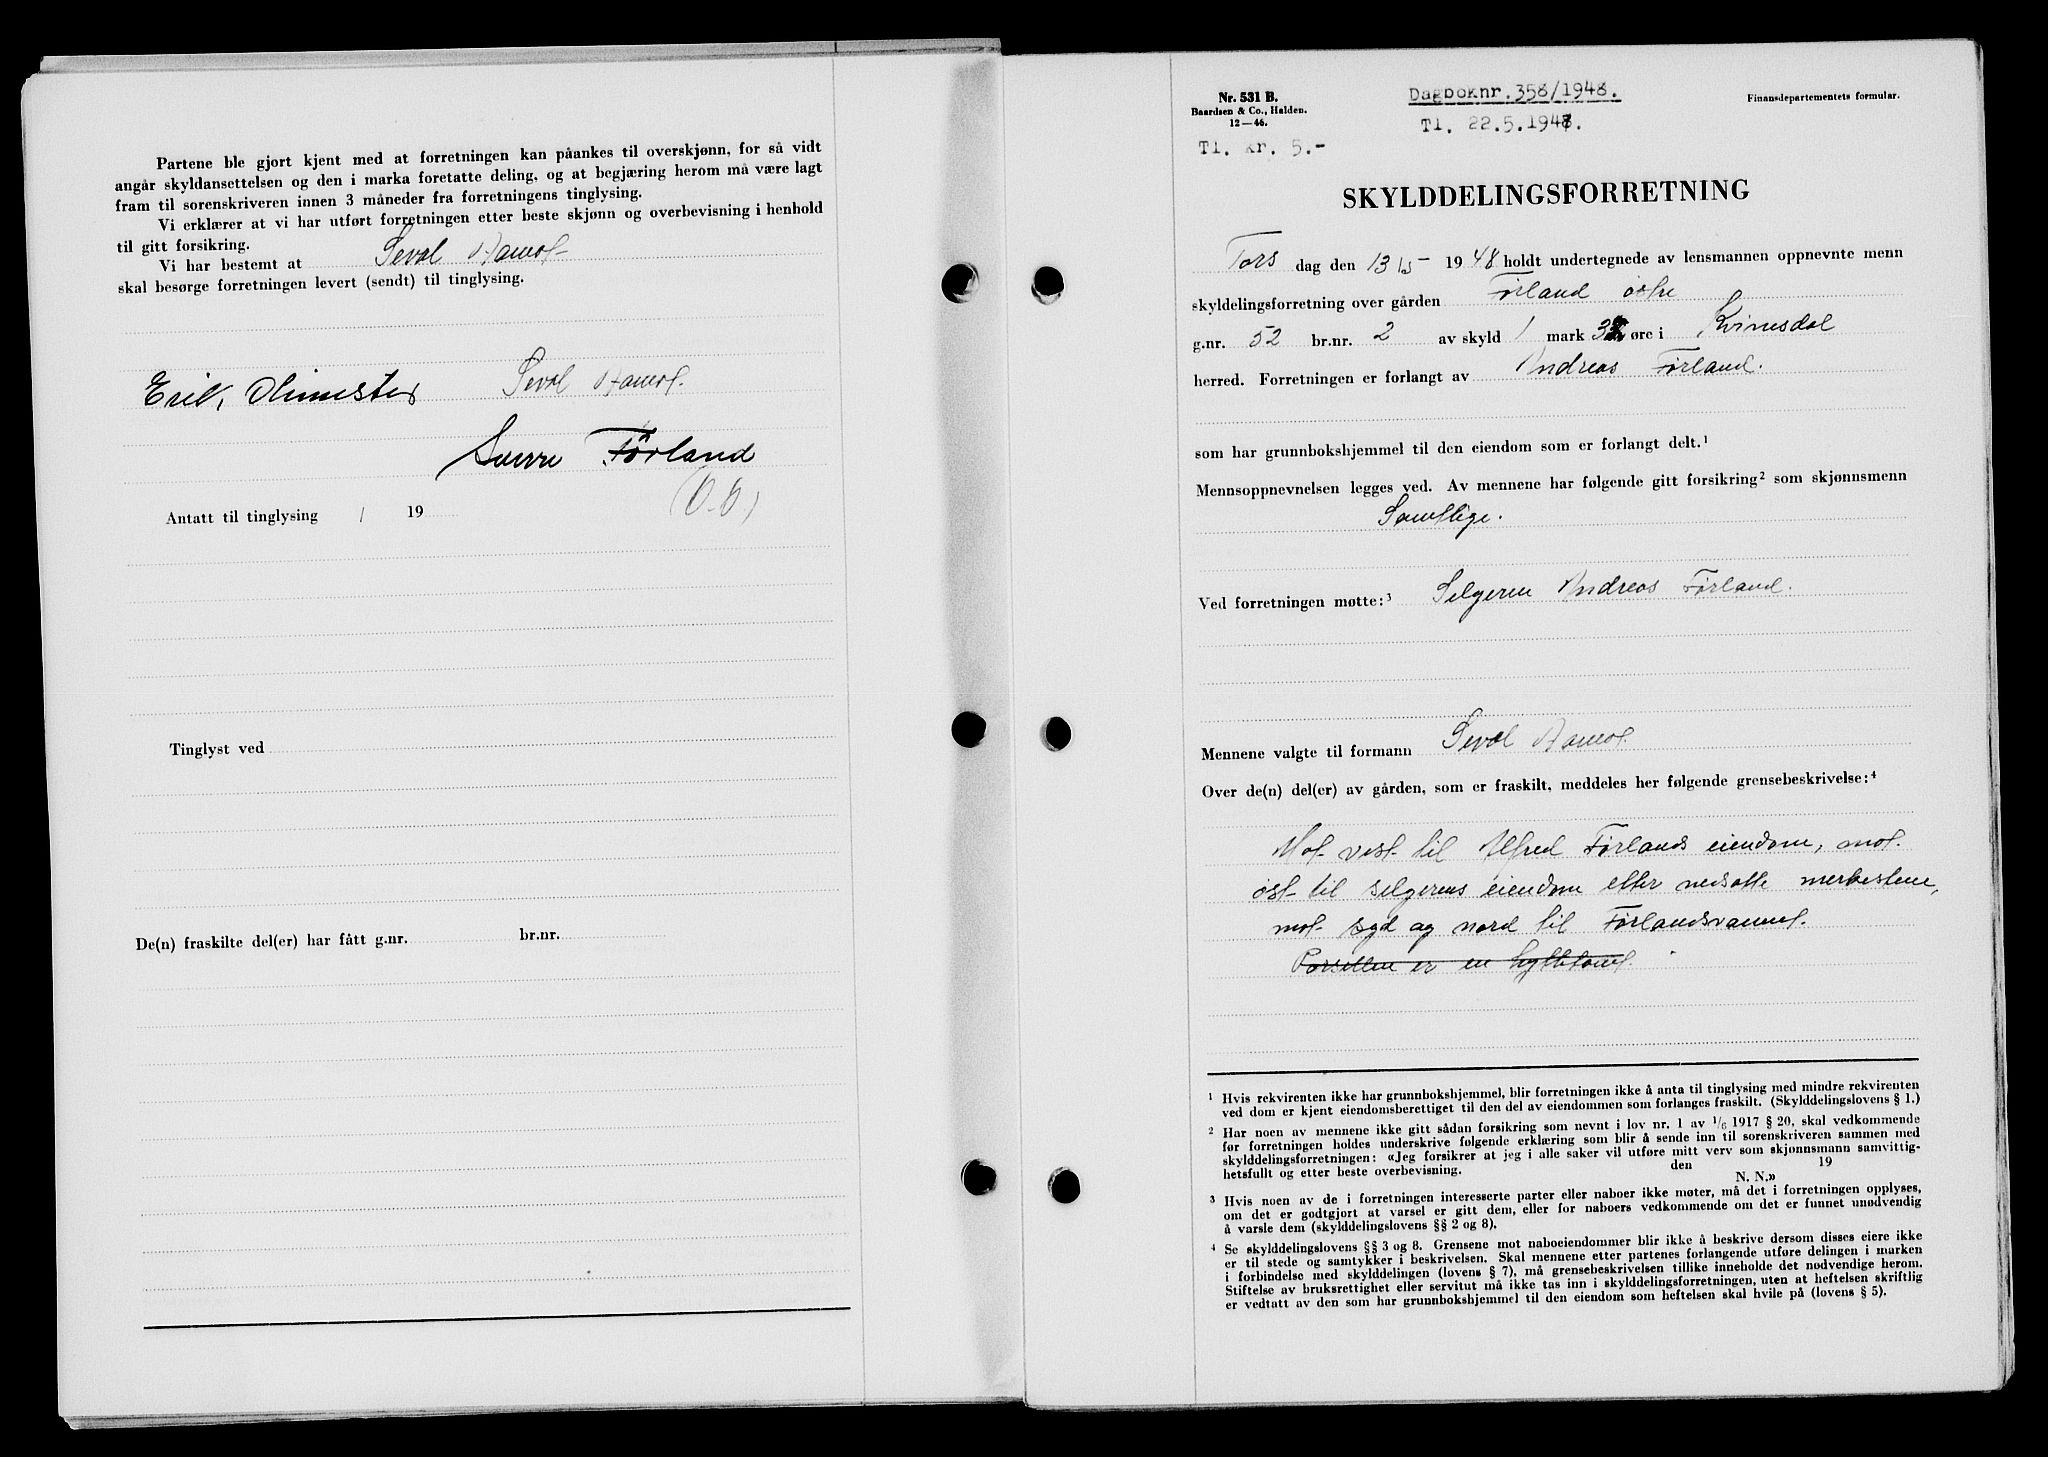 Partene ble gjort kjent med at forretningen kan påankes til overskjønn, for så vidt
angår skyldansettelsen og den i marka foretatte deling, og at begjæring herom må være lagt
fram til sorenskriveren innen 3 måneder fra forretningens tinglysing.
Vi erklærer at vi har utført forretningen etter beste skjønn og overbevisning i henhold
til gitt forsikring.
Vi har bestemt at Seval Hamof
skal besørge forretningen levert (sendt) til tinglysing.
Seval Hamof.
Erik Olimstad
Sverre Førland
Antatt til tinglysing / 19
Tinglyst ved
De(n) fraskilte del(er) har fått g.nr. br.nr.
Nr. 531 B.
Baardsen & Co., Halden.
12—46.
Dagboknr. 358/1948.
Tl. 22.5.1948.
Finansdepartementets formular.
Tl. kr. 5.-
SKYLDDELINGSFORRETNING
Tors dag den 13/5- 1948 holdt undertegnede av lensmannen oppnevnte menn
skyldelingsforretning over gården Førland østre
g.nr. 52 br.nr. 2 av skyld 1 mark øre i Kvinesdal
herred. Forretningen er forlangt av Andreas Førland.
som har grunnbokshjemmel til den eiendom som er forlangt delt.¹
Mennsoppnevnelsen legges ved. Av mennene har følgende gitt forsikring² som skjønnsmenn
Samtlige.
Ved forretningen møtte:³ Selgeren Andreas Førland.
Mennene valgte til formann Seval Hamof.
Over de(n) del(er) av gården, som er fraskilt, meddeles her følgende grensebeskrivelse:⁴
Mot vest til Alfred Førlands eiendom, mot
øst til selgerens eiendom etter nedsatte merkestene,
mot syd og nord til Førlandsvannet.
Parsellen er en hyttetomt.
¹ Hvis rekvirenten ikke har grunnbokshjemmel, blir forretningen ikke å anta til tinglysing med mindre rekvirenten
ved dom er kjent eiendomsberettiget til den del av eiendommen som forlanges fraskilt. (Skylddelingslovens § 1.)
² Har noen av mennene ikke gitt sådan forsikring som nevnt i lov nr. 1 av 1/6 1917 § 20, skal vedkommende
før forretningen holdes underskrive følgende erklæring som blir å sende inn til sorenskriveren sammen med
skylddelingsforretningen: «Jeg forsikrer at jeg i alle saker vil utføre mitt verv som skjønnsmann samvittig-
hetsfullt og etter beste overbevisning. den 19
N. N.»
³ Hvis noen av de i forretningen interesserte parter eller naboer ikke møter, må det i forretningen opplyses,
om det er godtgjort at varsel er gitt dem, eller for naboers vedkommende om det er funnet unødvendig
å varsle dem (skylddelingslovens §§ 2 og 8).
⁴ Se skylddelingslovens §§ 3 og 8. Grensene mot naboeiendommer blir ikke å beskrive dersom disses eiere ikke
er til stede og samtykker i beskrivelsen. Skal mennene etter partenes forlangende utføre delingen i marken
i forbindelse med skylddelingen (lovens § 7), må grensebeskrivelsen tillike inneholde det nødvendige herom.
Stiftelse av bruksrettighet eller servitut må ikke tas inn i skylddelingsforretningen, uten at heftelsen skriftlig
er vedtatt av den som har grunnbokshjemmel til den eiendom som heftelsen skal hvile på (lovens § 5).